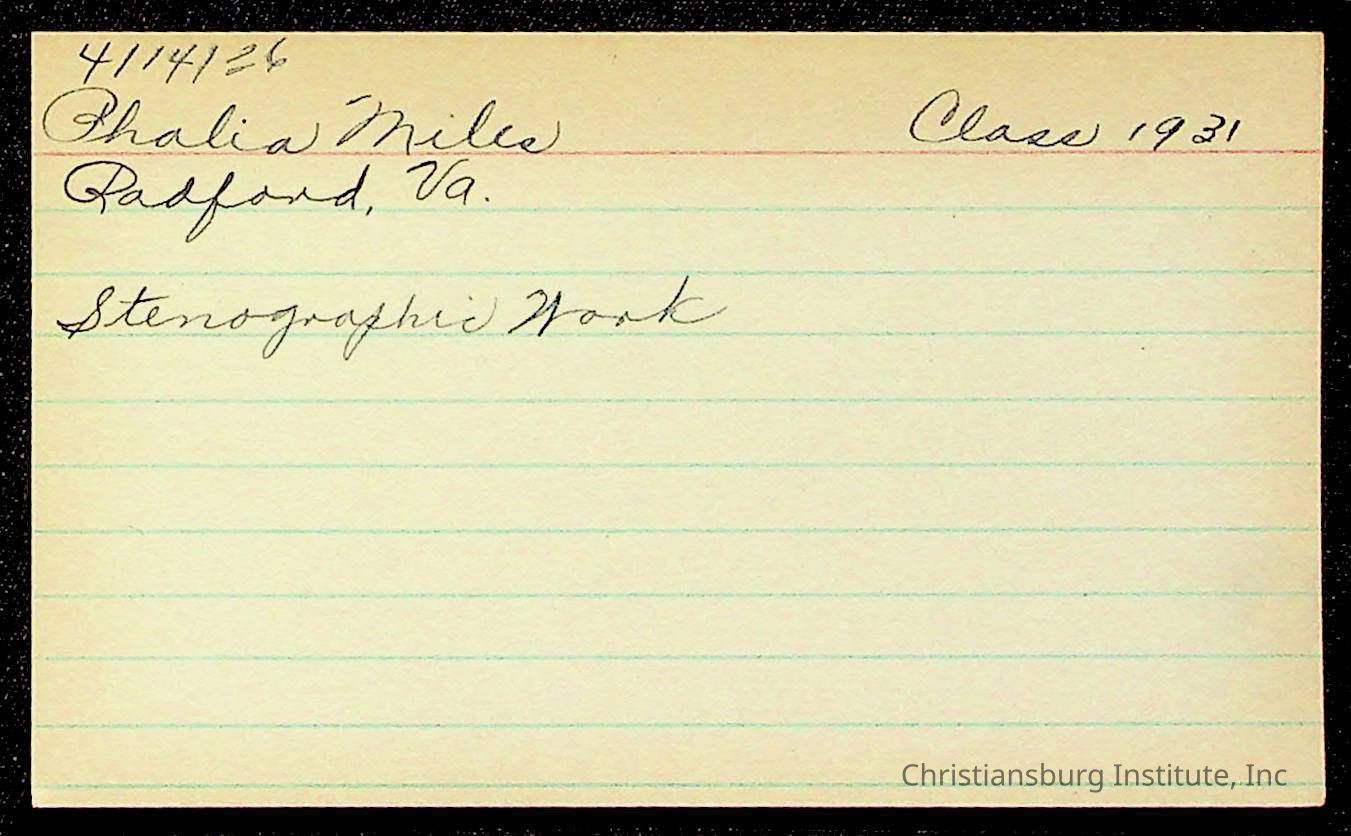 4/14/36
Phalia Miles Class 1931
Radford, Va.
Stenographic Work
Christiansburg Institute, Inc